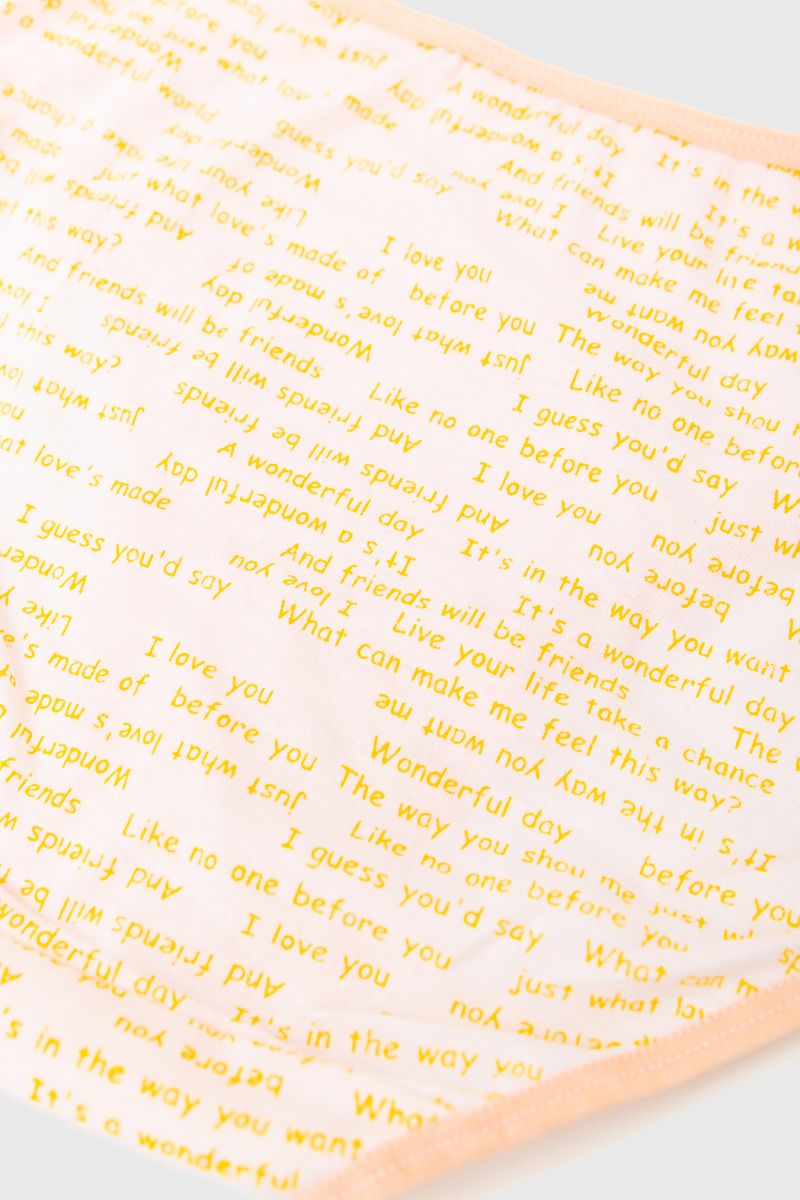 before you
just what
Wonderful
a wonderful world
just what love made
A wonderful day
Wonderful day
It's a wonderful day
It's in the
guess you'd say
Wonderful day
And friends will be friends
I love you
It's a
Like your life take a chance
just what love's made of
What can make me feel
Live your
And friends will be friends
I love you
feel this way?
before you
way you want me
Wonderful day
just what love's made of
And friends will be friends
The way you shou
Wonderful day
Like no one before
this way?
And friends will be friends
Like no one before you
I guess you'd say
just what
And friends will be friends
I love you
just
A wonderful day
before you
before you
love's made
It's a wonderful day
It's in the way you want
I guess you'd say
And friends will be friends
It's a wonderful day
I love you
Live your life take a chance
What can make me feel this way?
The
Like
I love you
It's in the way you want me
made of
before you
Wonderful day
before you
just what love's made
The way you shou me just
Wonderful
Like no one before you
friends
Like no one before you
I guess you'd say
What can
And friends
I love you
just what
And friends will be
before you
wonderful day
It's in the way you
before you
in the way you want
It's a wonderful